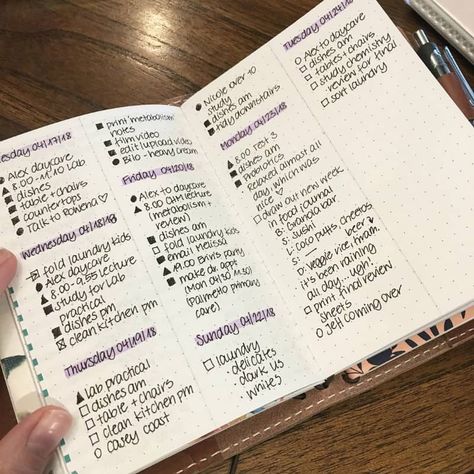 Tuesday 04/17/18
Alex daycare
8:00 - 11:10 Lab
dishes
table + chairs
countertops
Talk to Rowena ♡
Wednesday 04/18/18
fold laundry kids
Alex daycare
8:00 - 9:55 lecture
study for Lab
practical
dishes pm
clean kitchen pm
Thursday 04/19/18
lab practical
dishes am
table + chairs
clean kitchen pm
casey coast
print 'metabolism'
notes
film video
edit/upload video
Bilo - heavy cream
Friday 04/20/18
Alex to daycare
8:00 lecture
(metabolism +
review)
dishes am
fold laundry kids
email Melissa
19:00 Brin's party
make dr. appt
(Mon 04/30 11:30)
(Palmetto primary
care)
Sunday 04/22/18
laundry
delicates
dark us
whites
Nicole over to
study
dishes am
tidy downstairs
Monday 04/23/18
8:00 test 3
dishes am
Probiotics
Relaxed almost all
day which was
nice ♡
draw out new week
in food journal
B: Granola bar
S: sushi
L: coco puffs cheerios
S: beer
D: veggie rice/
it's been raining
all day... ugh!
print final review
sheets
Jeff coming over
Tuesday 04/24/18
Alex to daycare
dishes am
tables + chairs
study chemistry
review for final
sort laundry